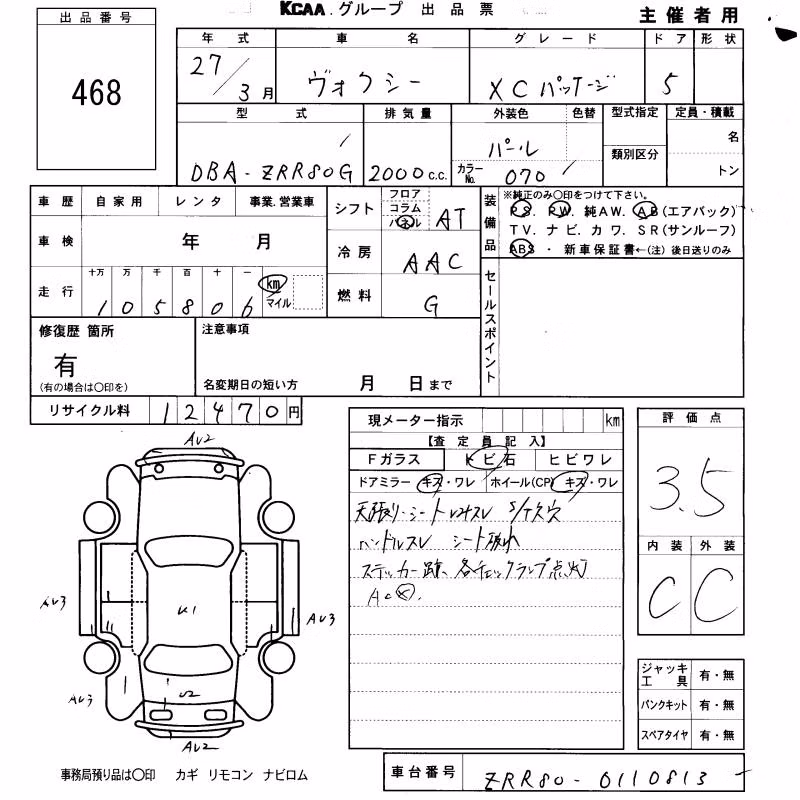 KCAA.グループ 出品票
主催者用
出品番号
468
年式 車名 グレード ドア 形状
27/3月 ヴォクシー X Cパッケージ 5
型式 排気量 外装色 色替 型式指定 定員・積載
DBA-ZRR80G 2000c.c. パール 名
類別区分
カラーNo. 070 トン
車歴 自家用 レンタ 事業.営業車
車検 年 月
走行 十万 万 千 百 十 一
1 0 5 8 0 6 km マイル
シフト フロア コラム パネル AT
冷房 AAC
燃料 G
装備品 ※純正のみ〇印をつけて下さい。
PS. PW. 純AW. AB(エアバック)
TV. ナビ. カワ. SR(サンルーフ)
ABS ・ 新車保証書←(注) 後日送りのみ
セールスポイント
修復歴 箇所
有
(有の場合は〇印を)
注意事項
名変期日の短い方 月 日まで
リサイクル料 12470円
現メーター指示 km
【査定員記入】
Fガラス トビ石 ヒビワレ
ドアミラー キズ・ワレ ホイール(CP) キズ・ワレ
天張り・シート
ハンドルスレ シート破れ
ステッカー跡、各チェックランプ点灯
AC
評価点
3.5
内装 外装
C C
AV2
AV3
U1
AV3
AV3
U2
AV2
ジャッキ工具 有・無
パンクキット 有・無
スペアタイヤ 有・無
事務局預り品は〇印 カギ リモコン ナビロム
車台番号 ZRR80-0110813